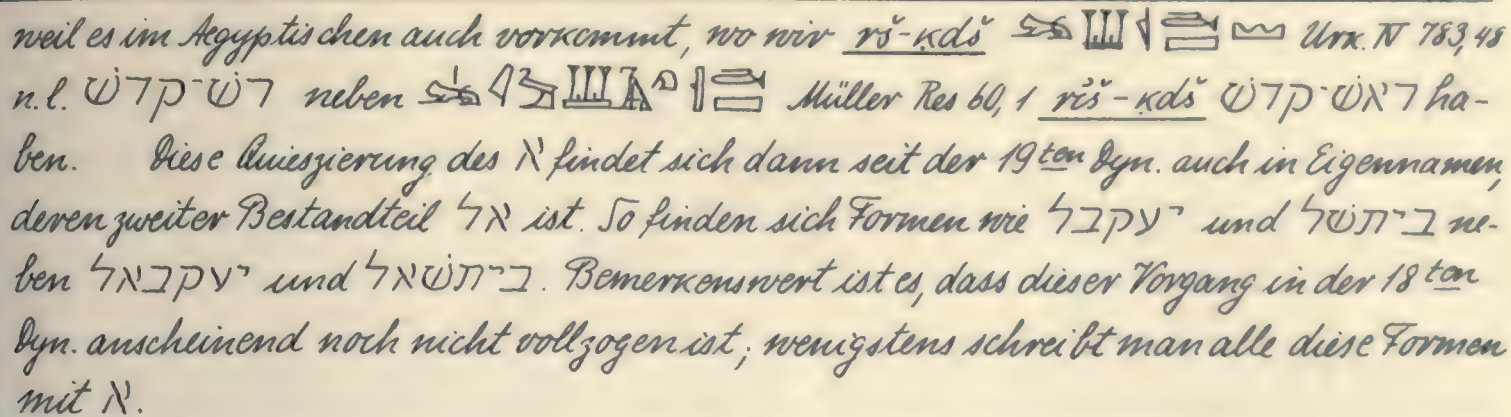 weil es im Aegyptischen auch vorkommt, wo wir rš-ḳdš Urk. IV 783,48
n.l. רש־קדש neben Müller Res 60,1 rỉš-ḳdš ראש־קדש ha-
ben. Diese Quieszierung des א findet sich dann seit der 19ten Dyn. auch in Eigennamen,
deren zweiter Bestandteil אל ist. So finden sich Formen wie יעקבל und ביתשל ne-
ben יעקבאל und ביתשאל. Bemerkenswert ist es, dass dieser Vorgang in der 18ten
Dyn. anscheinend noch nicht vollzogen ist; wenigstens schreibt man alle diese Formen
mit א.